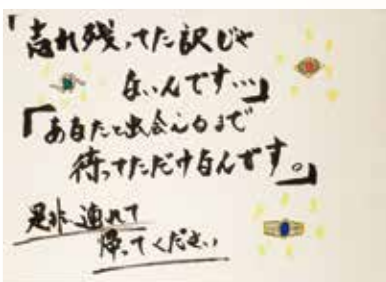 「売れ残ってた訳じゃ
ないんです…」
「あなたと出会えるまで
待ってただけなんです。」
是非連れて
帰ってください